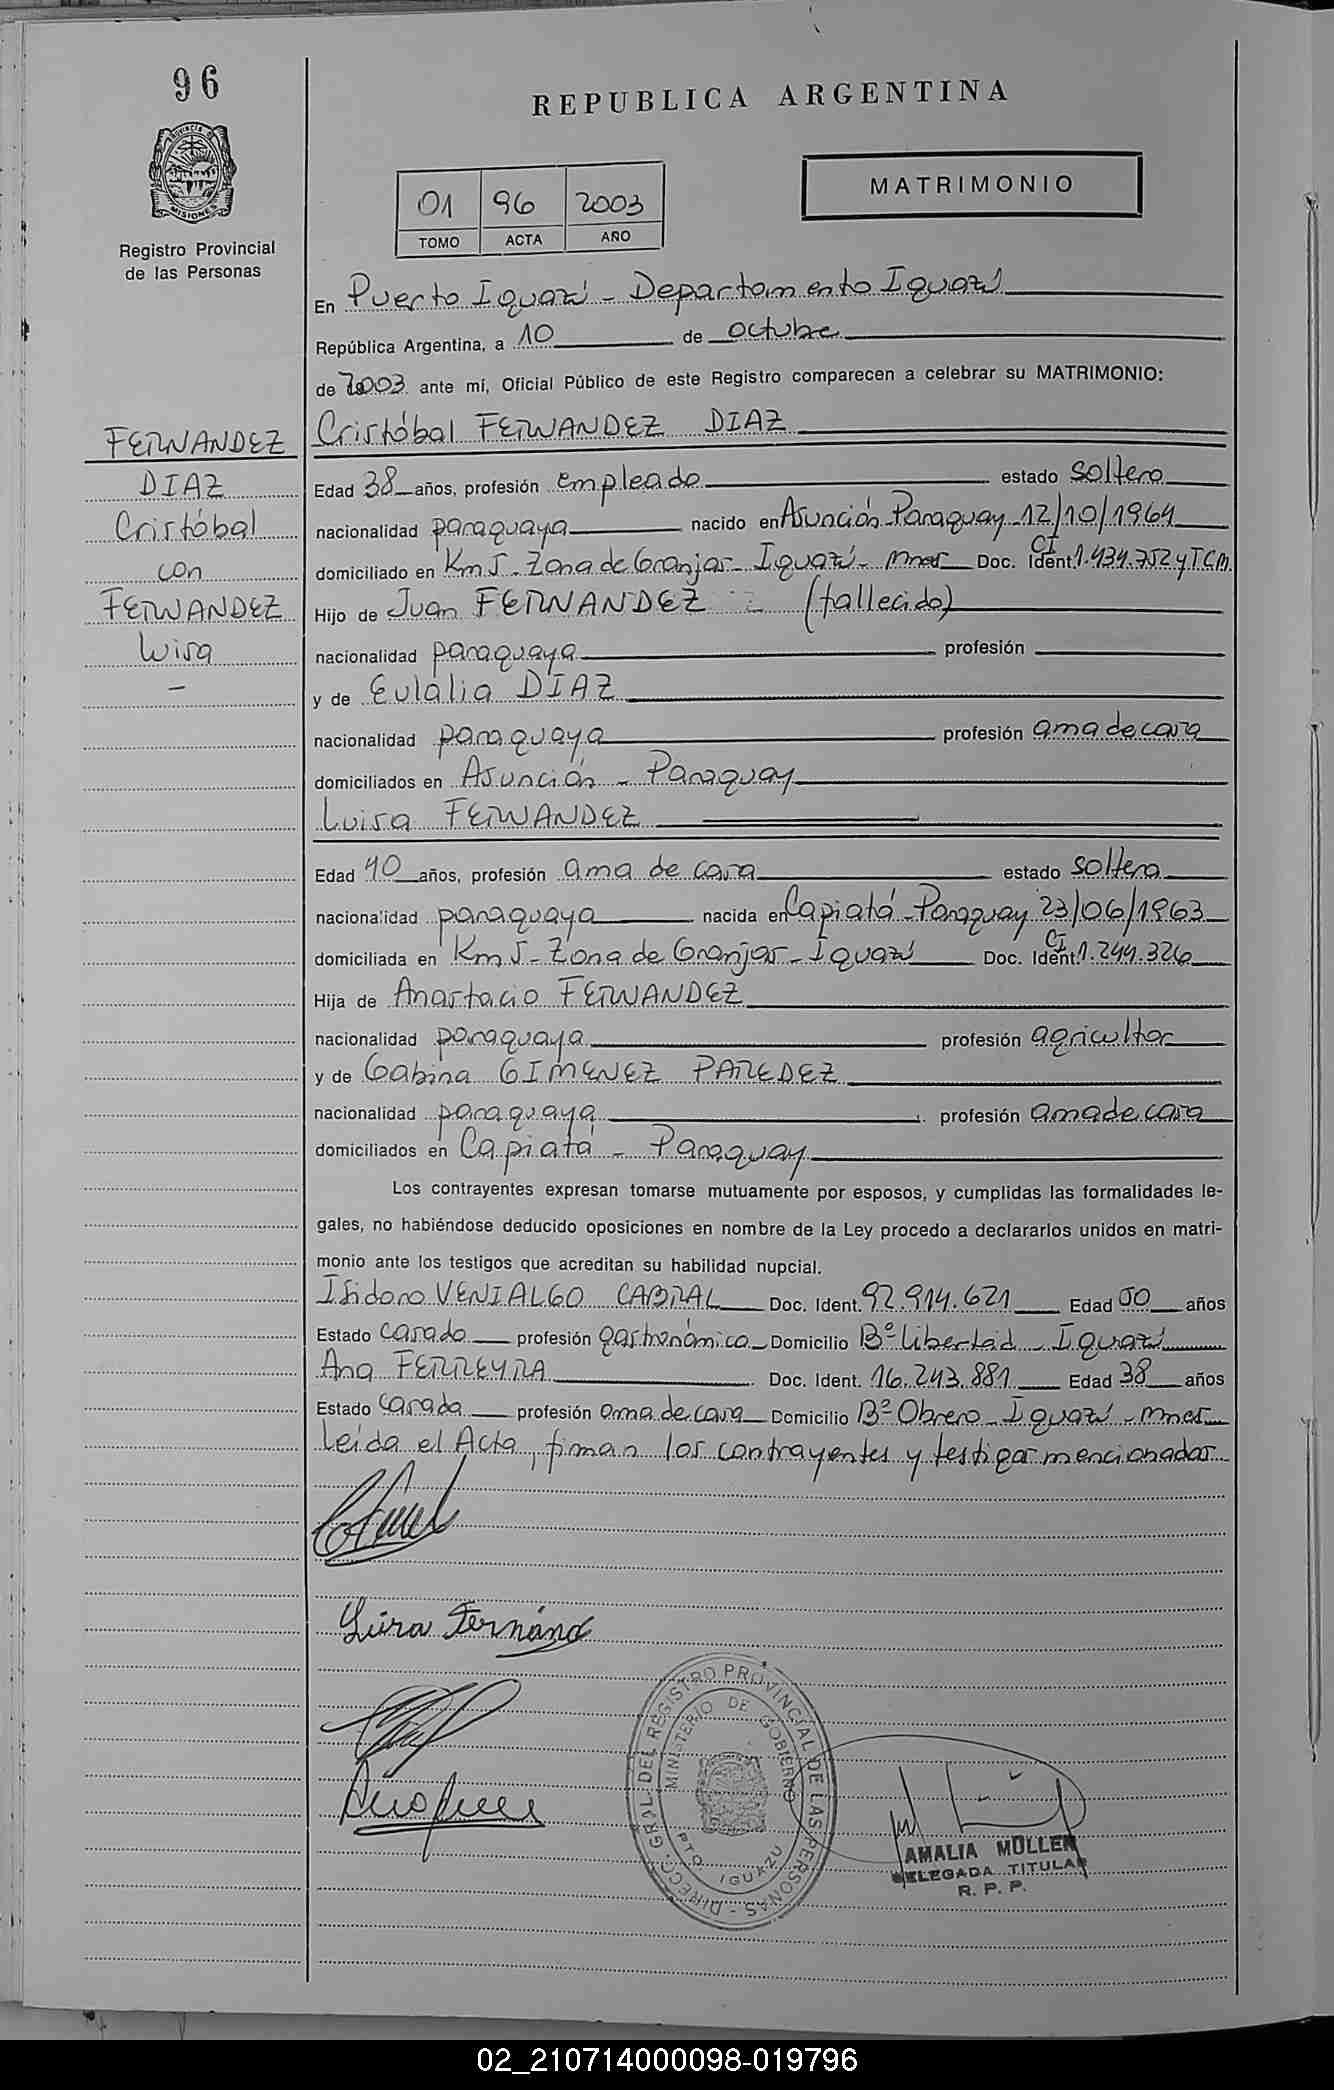 96
REPUBLICA ARGENTINA
PROVINCIA DE
MISIONES
Registro Provincial
de las Personas
01 96 2003
TOMO ACTA AÑO
MATRIMONIO
En Puerto Iguazú - Departamento Iguazú
República Argentina, a 10 de octubre
de 2003 ante mí, Oficial Público de este Registro comparecen a celebrar su MATRIMONIO:
FERNANDEZ
DIAZ
Cristóbal
con
FERNANDEZ
Luisa
-
Cristóbal FERNANDEZ DIAZ
Edad 38 años, profesión empleado estado soltero
nacionalidad paraguaya nacido en Asunción-Paraguay 12/10/1964
domiciliado en Km 5 - Zona de Granjas - Iguazú - Mnes Doc. Ident. CI 1.434.752 y TCM.
Hijo de Juan FERNANDEZ (fallecido)
nacionalidad paraguaya profesión
y de Eulalia DIAZ
nacionalidad paraguaya profesión ama de casa
domiciliados en Asunción - Paraguay
Luisa FERNANDEZ
Edad 40 años, profesión ama de casa estado soltera
nacionalidad paraguaya nacida en Capiatá - Paraguay 23/06/1963
domiciliada en Km 5 - Zona de Granjas - Iguazú Doc. Ident. CI 1.244.326
Hija de Anastacio FERNANDEZ
nacionalidad paraguaya profesión agricultor
y de Gabina GIMENEZ PAREDEZ
nacionalidad paraguaya profesión ama de casa
domiciliados en Capiatá - Paraguay
Los contrayentes expresan tomarse mutuamente por esposos, y cumplidas las formalidades le-
gales, no habiéndose deducido oposiciones en nombre de la Ley procedo a declararlos unidos en matri-
monio ante los testigos que acreditan su habilidad nupcial.
Isidoro VENIALGO CABRAL Doc. Ident. 92.914.621 Edad 50 años
Estado casado profesión gastronómico Domicilio Bº Libertad - Iguazú
Ana FERREYRA Doc. Ident. 16.243.881 Edad 38 años
Estado casada profesión ama de casa Domicilio Bº Obrero - Iguazú - Mnes
Leída el Acta, firman los contrayentes y testigos mencionados
Luisa Fernánd
DIRECC. GRAL. DEL REGISTRO PROVINCIAL DE LAS PERSONAS -
MINISTERIO DE GOBIERNO
PTO. IGUAZU
AMALIA MÜLLER
DELEGADA TITULAR
R. P. P.
02_210714000098-019796